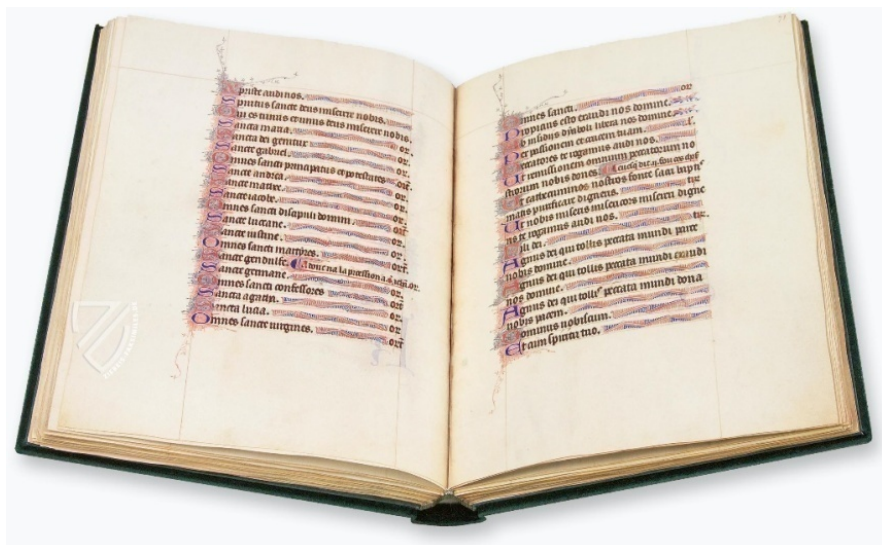 priste audi nos.
Spiritus sancte deus miserere nobis.
unus deus miserere nobis.
Sancta maria. or.
Sancta dei genitrix or.
Sancte gabriel. or.
Omnes sancti principatus et potestates or.
Sancte andrea. or.
Sancte mathee. or.
Sancte iacobe. or.
Omnes sancti discipuli domini. or.
Sancte luciane. or.
Sancte iustine. or.
Omnes sancti martyres. or.
Sancte gendulfe. la procession or.
Sancte germane. or.
Omnes sancti confessores or.
Sancta agathn. or.
Sancta lucia. or.
Omnes sancte virgines. or.
or
Omnes sancti.
Propicius esto exaudi nos domine.
Ab insidiis diaboli libera nos domine. l.
Per passionem et crucem tuam.
Peccatores te rogamus audi nos.
Ut remissionem omnium peccatorum no
strorum nobis dones
Ut cathecuminos nostros fonte sacri
matis purificare digneris. te r.
Ut nobis miseris misericors misereri digne
ris te rogamus audi nos.
Fili dei. te r.
Agnus dei qui tollis peccata mundi parce
nobis domine.
Agnus dei qui tollis peccata mundi exaudi
nos domine.
Agnus dei qui tollis peccata mundi dona
nobis pacem.
Dominus nobiscum.
Et cum spiritu tuo.